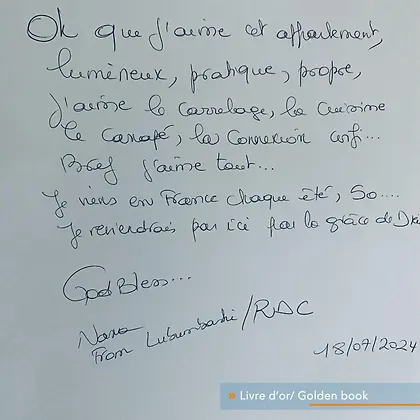 Oh que j'aime cet appartement,
lumineux, pratique, propre,
j'aime le carrelage, la cuisine
le canapé, la connexion wifi...
Bref j'aime tout...
Je viens en France chaque été, So....
Je reviendrais par ici par la grâce de Dieu
God Bless...
Nana
From Lubumbashi/RDC
18/07/2024
» Livre d'or/ Golden book